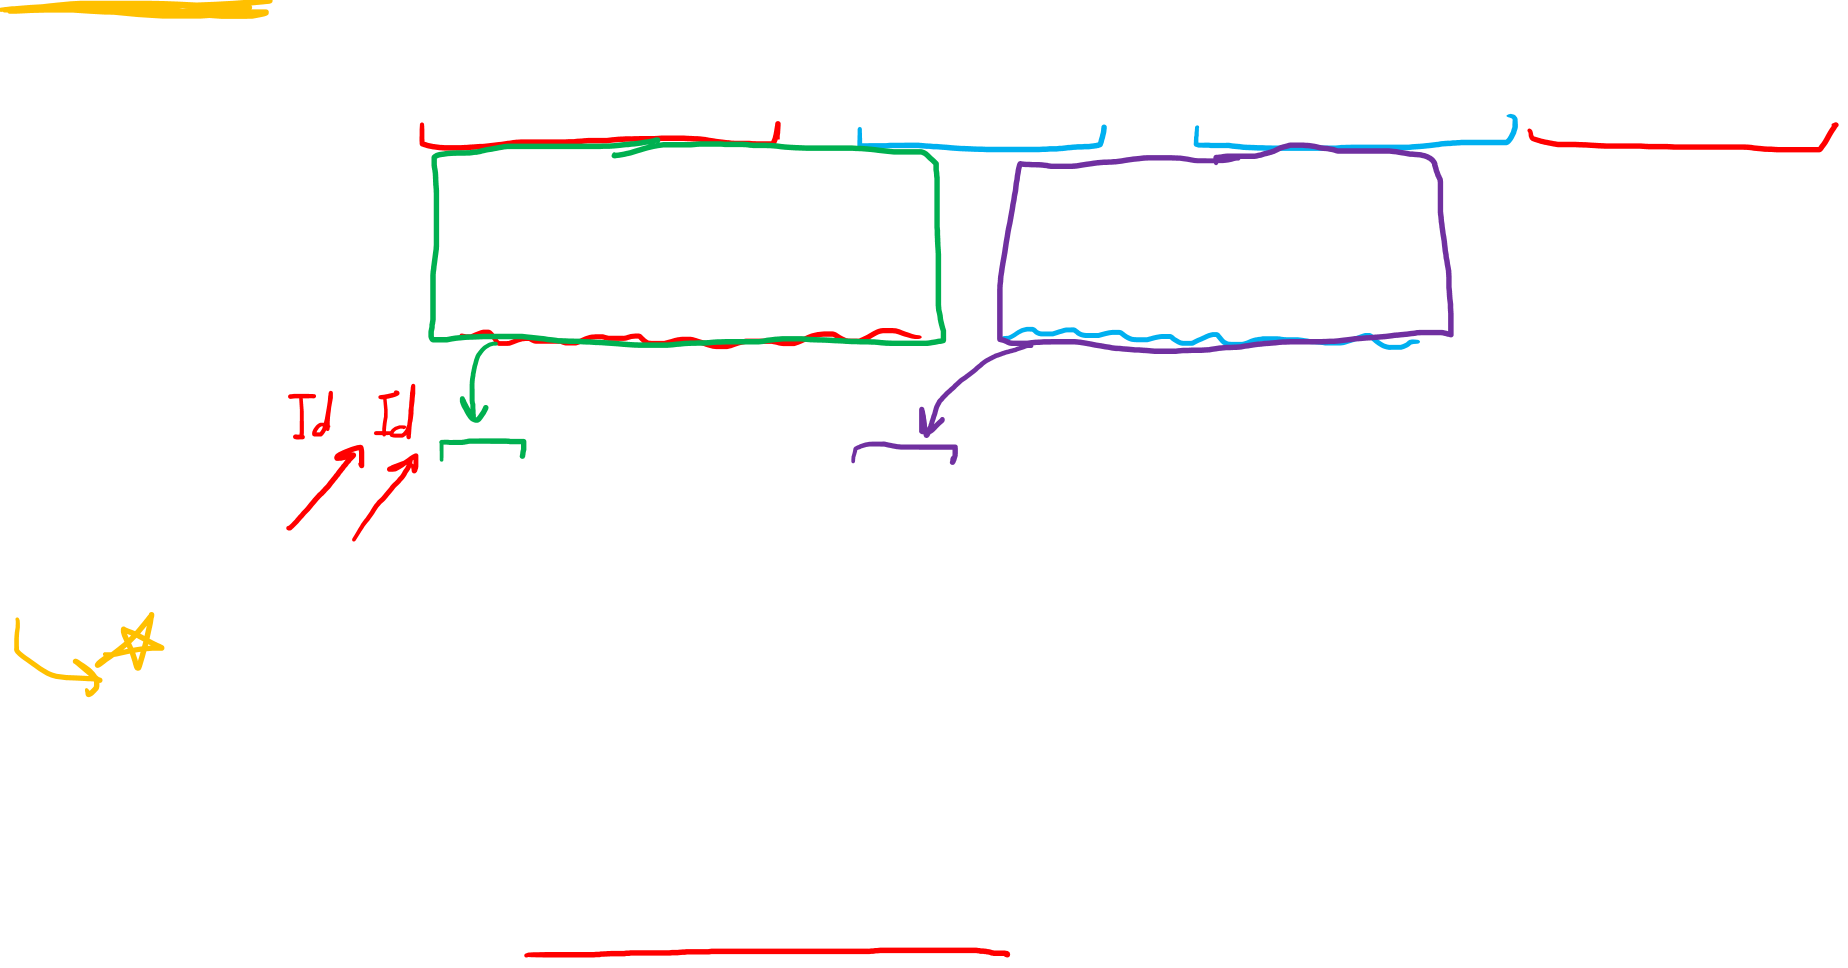 Id Id